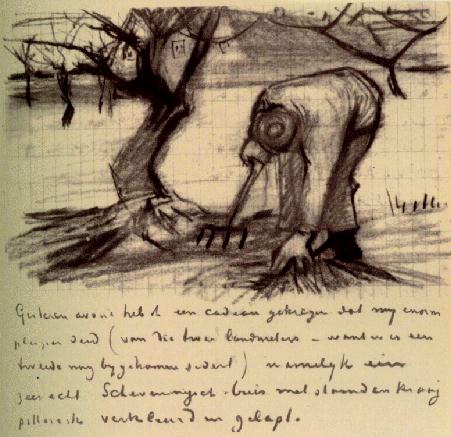 Gisteren avond heb ik een cadeau gekregen dat my enorm
plezier deed (van die twee landmeters – want er is een
tweede nog bygekomen sedert) namelyk een
zeer echt Schevenings buis met staanden kraag
pittoresk verkleurd en gelapt.